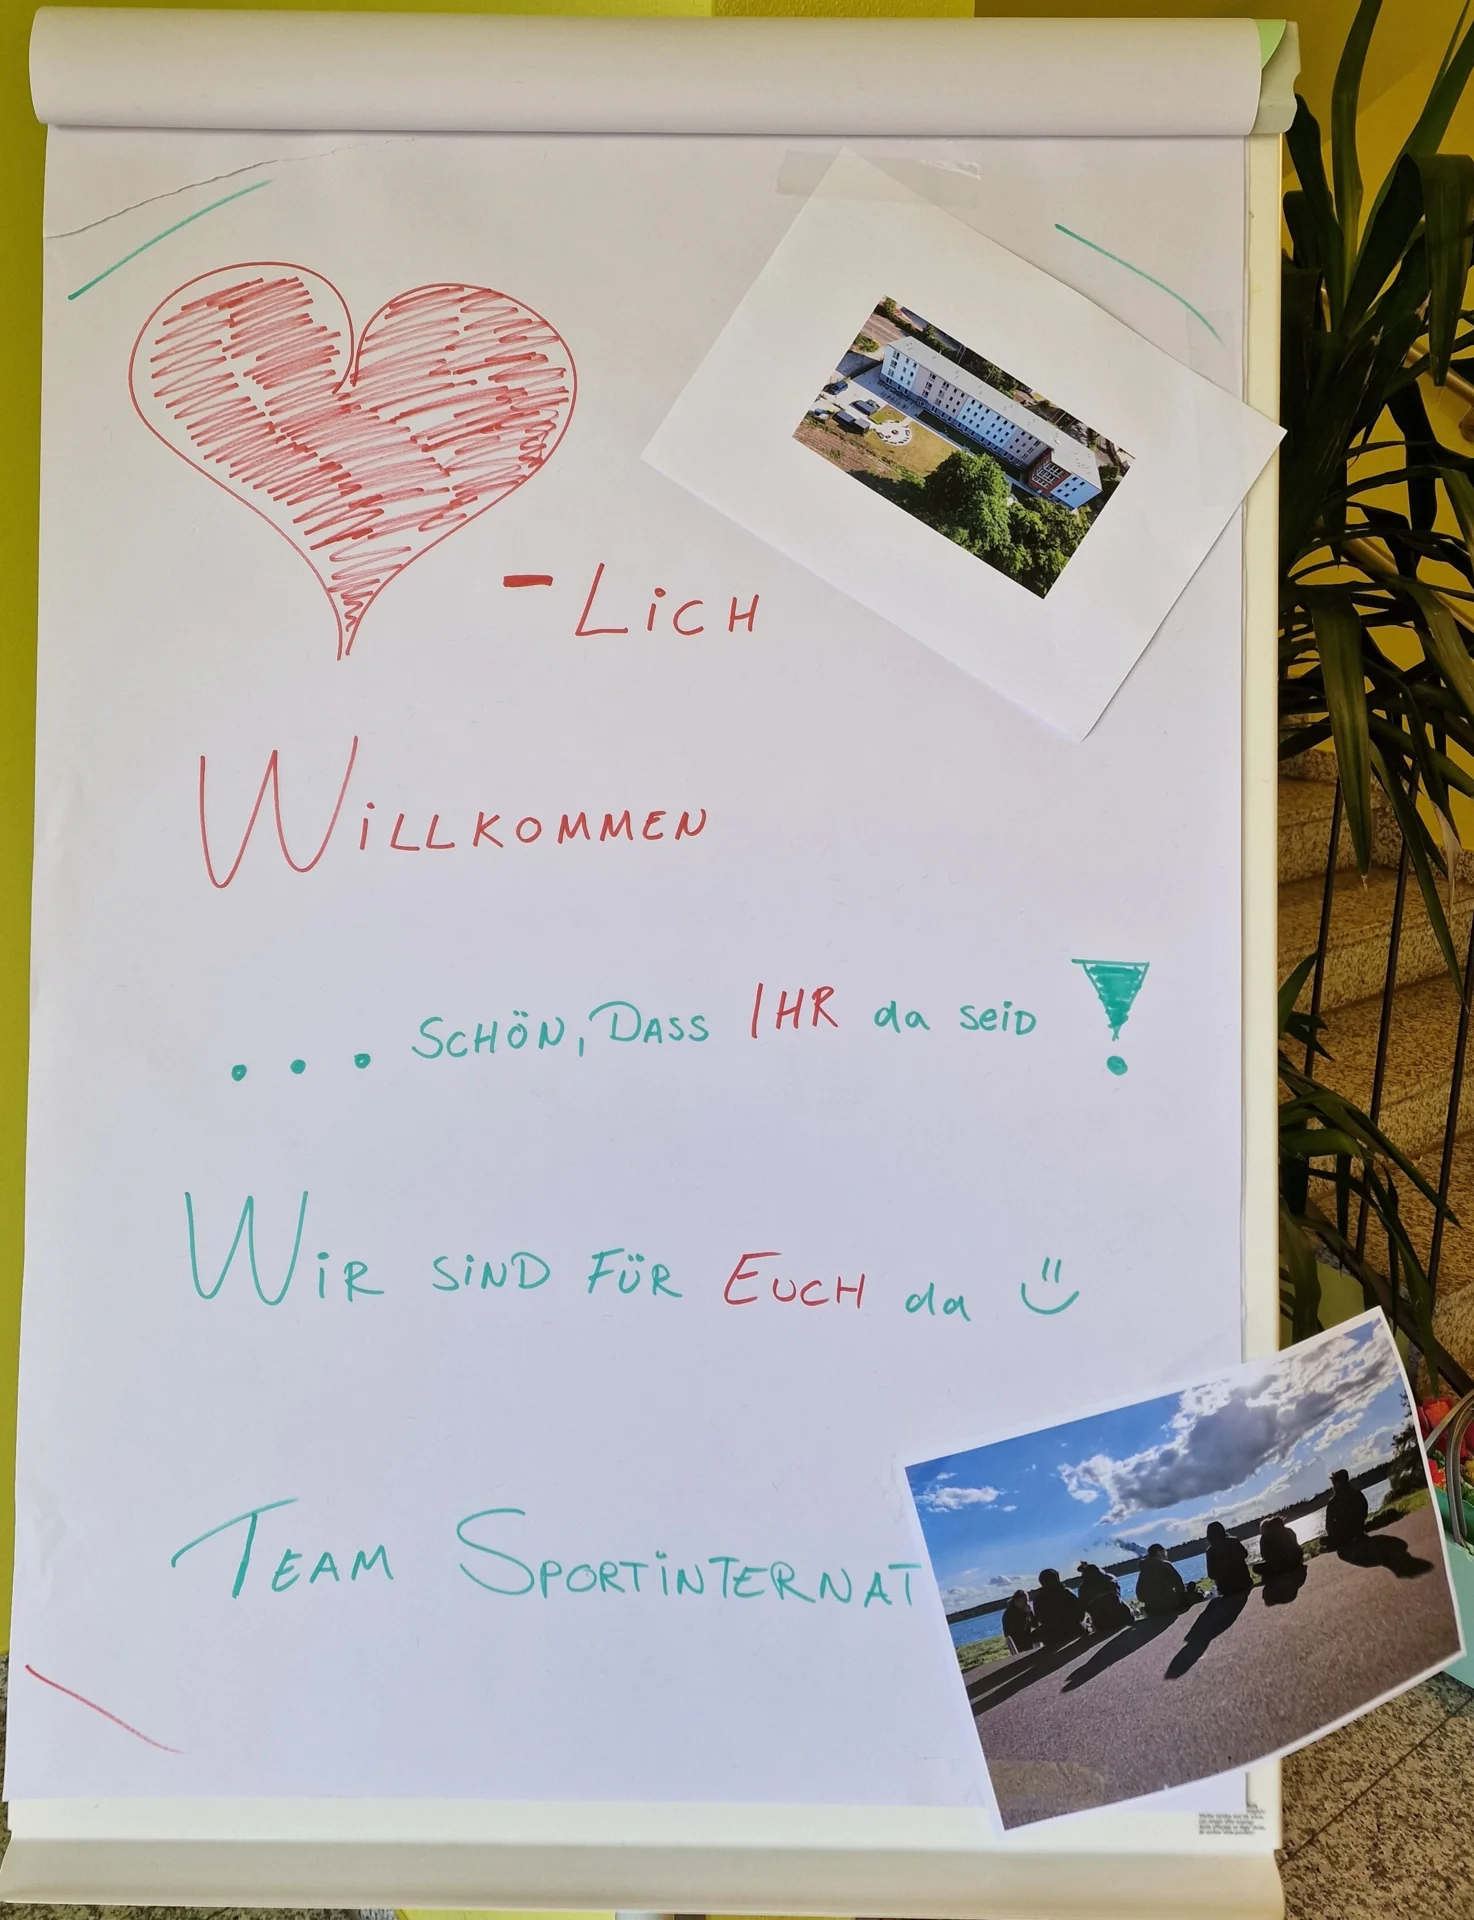 - LiCH
WiLLKOMMEN
... SCHÖN, DASS IHR da SEiD !
WiR SiND FÜR EUCH da
TEAM SPORTiNTERNAT